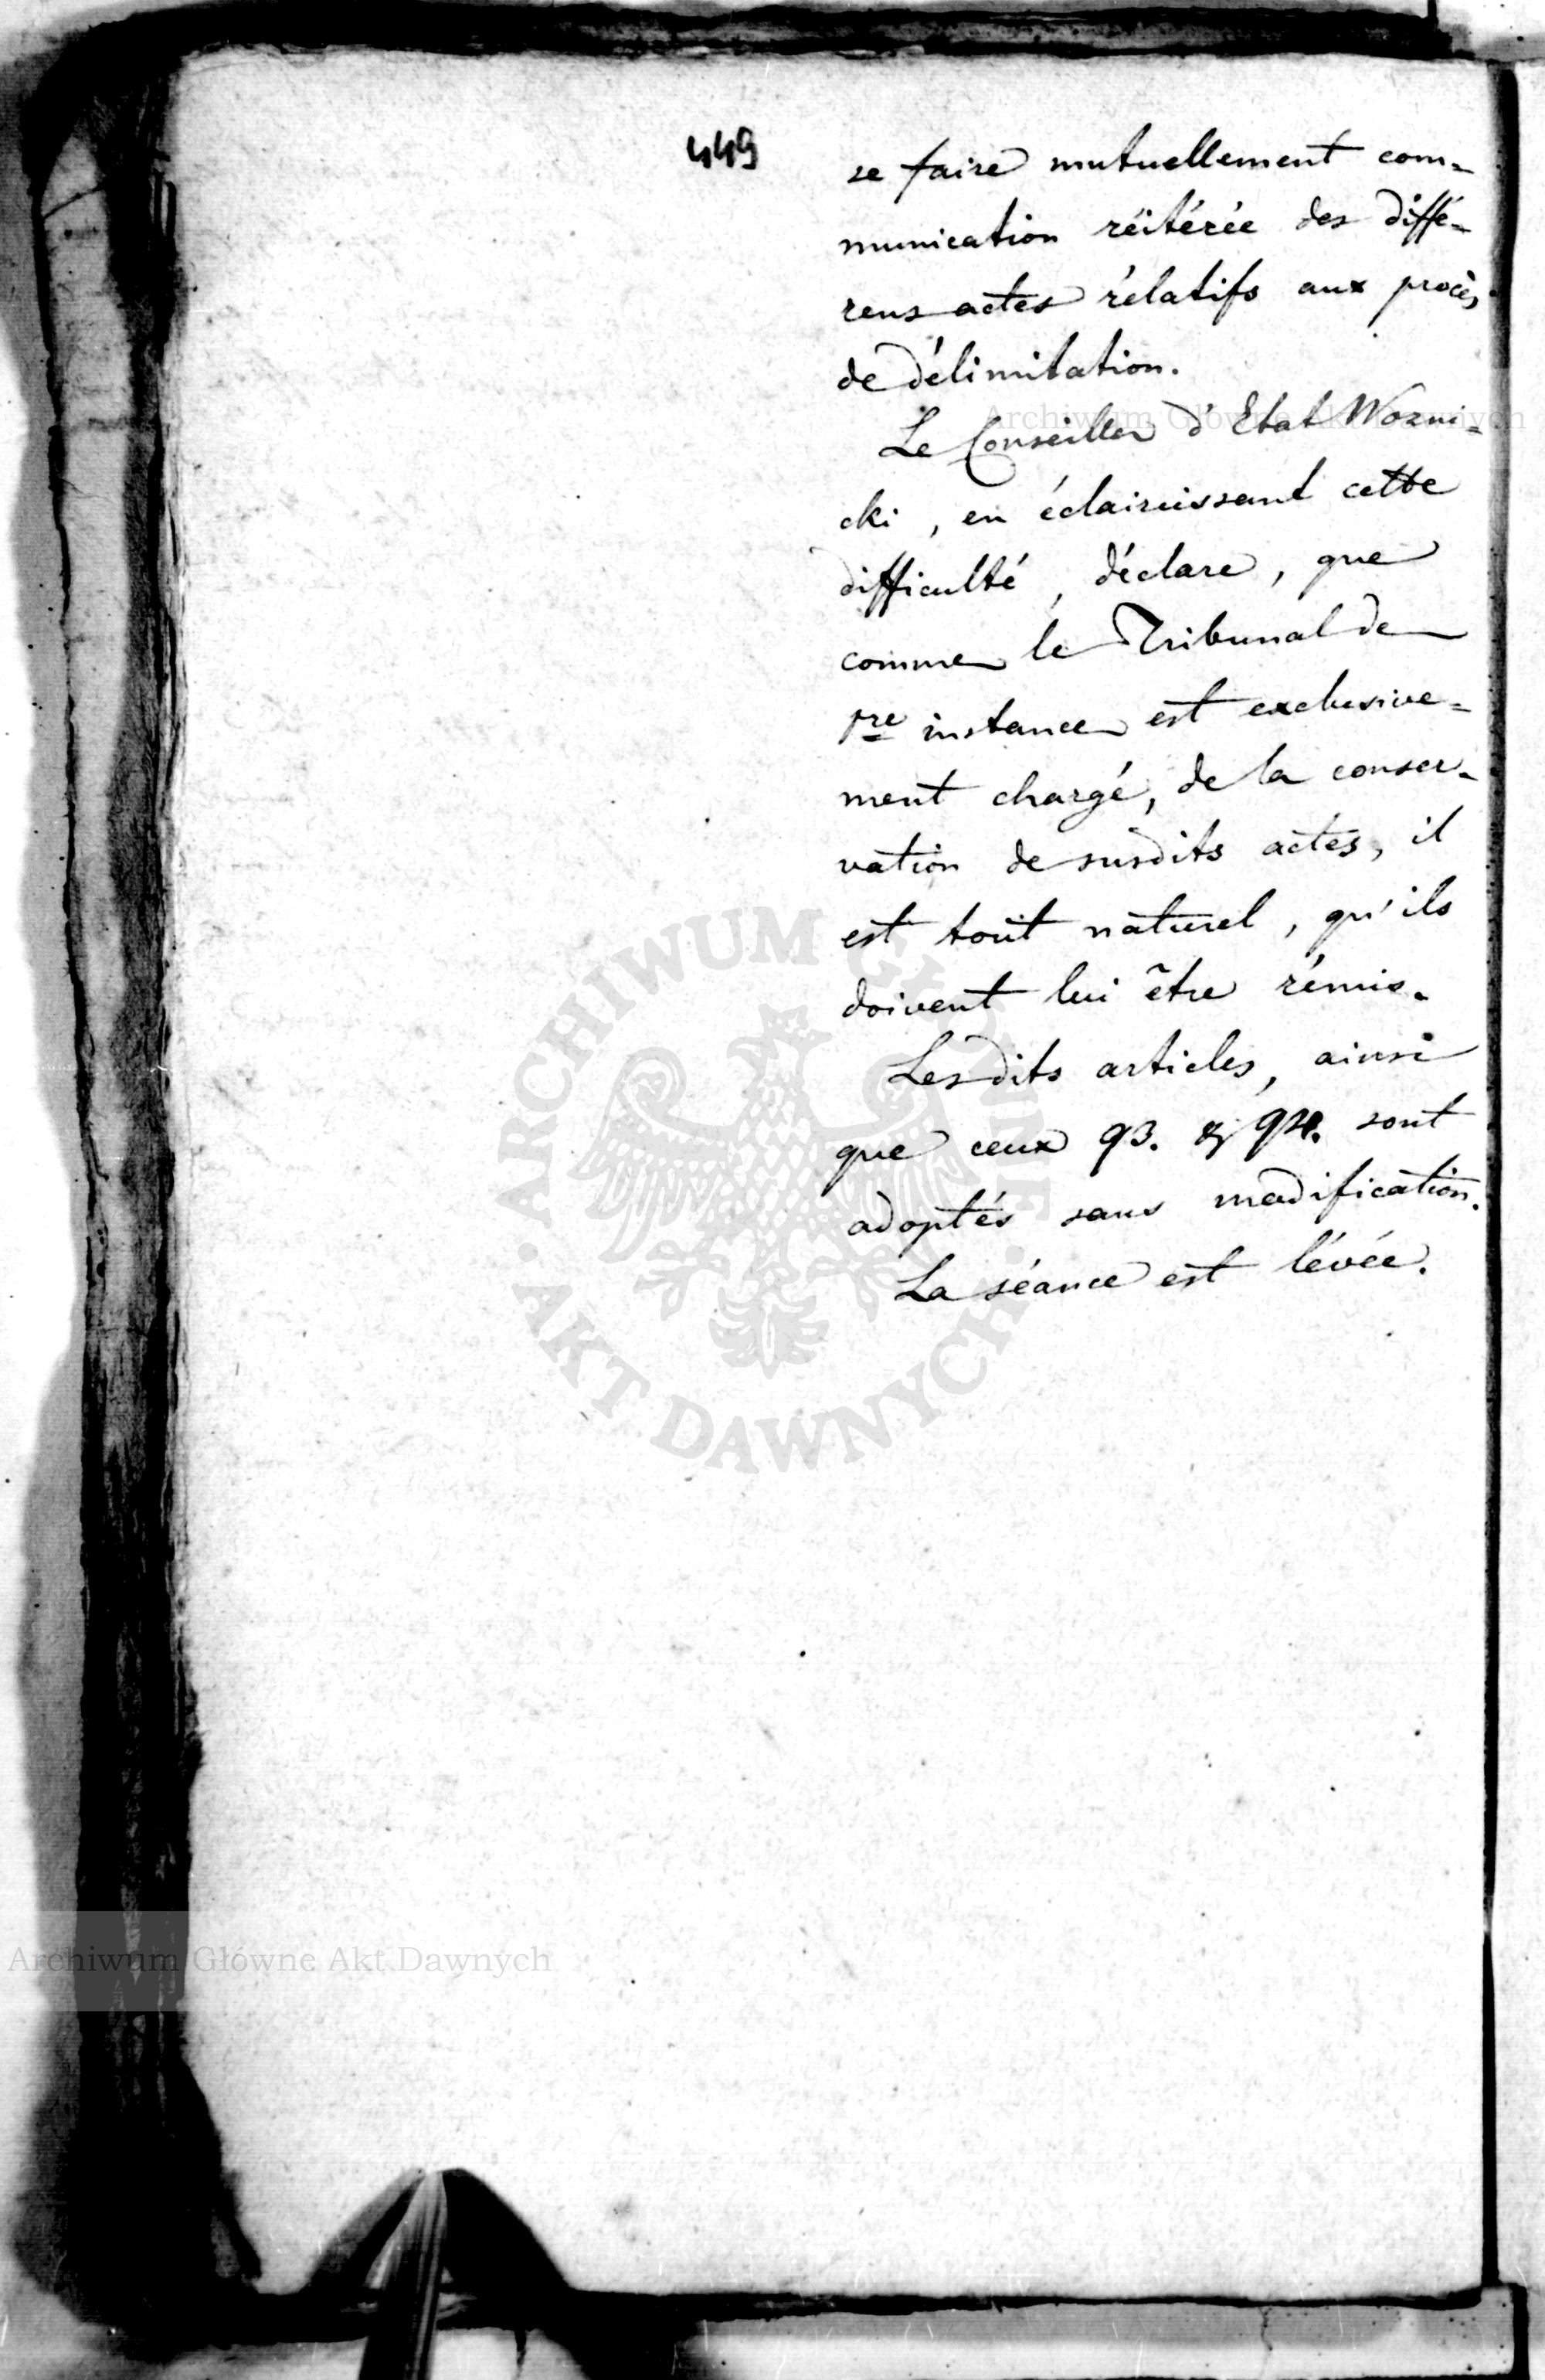 449
se faire mutuellement com-
munication réitérée des diffé-
rens actes rélatifs aux procès
de délimitation.
Le Conseiller d'Etat Wozni-
cki, en éclaircissant cette
difficulté, déclare, que
comme le Tribunal de
1re instance est exclusive=
ment chargé, de la conser-
vation de susdits actes, il
est tout naturel, qu'ils
doivent lui être rémis.
Lesdits articles, ainsi
que ceux 93. & 94. sont
adoptés sans modification.
La séance est lévée.
Archiwum Główne Akt Dawnych
ARCHIWUM GŁÓWNE
AKT DAWNYCH
Archiwum Główne Akt Dawnych